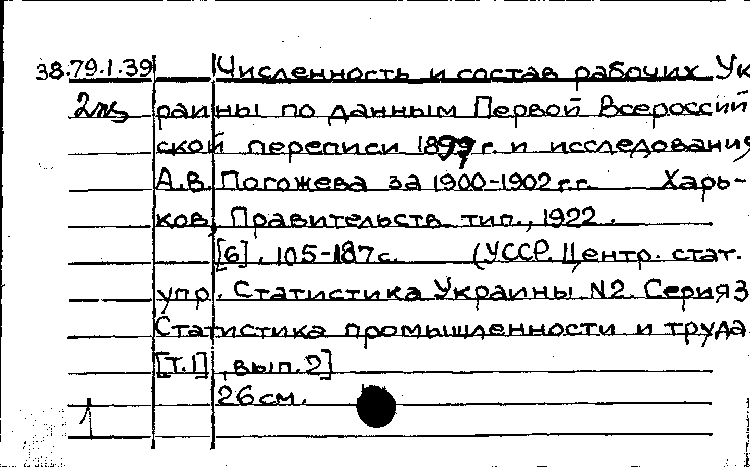 38.79.1.39 Численность и состав рабочих Ук
2 экз раины по данным Первой Всероссий
ской переписи 1897 г. и исследования
А.В. Погожева за 1900-1902 г.г. Харь-
ков, Правительств. тип., 1922.
[6], 105-187 с. (УССР. Центр. стат.
упр. Статистика Украины N2. Серия 3
Статистика промышленности и труда
[т.1], вып.2]
26 см.
1